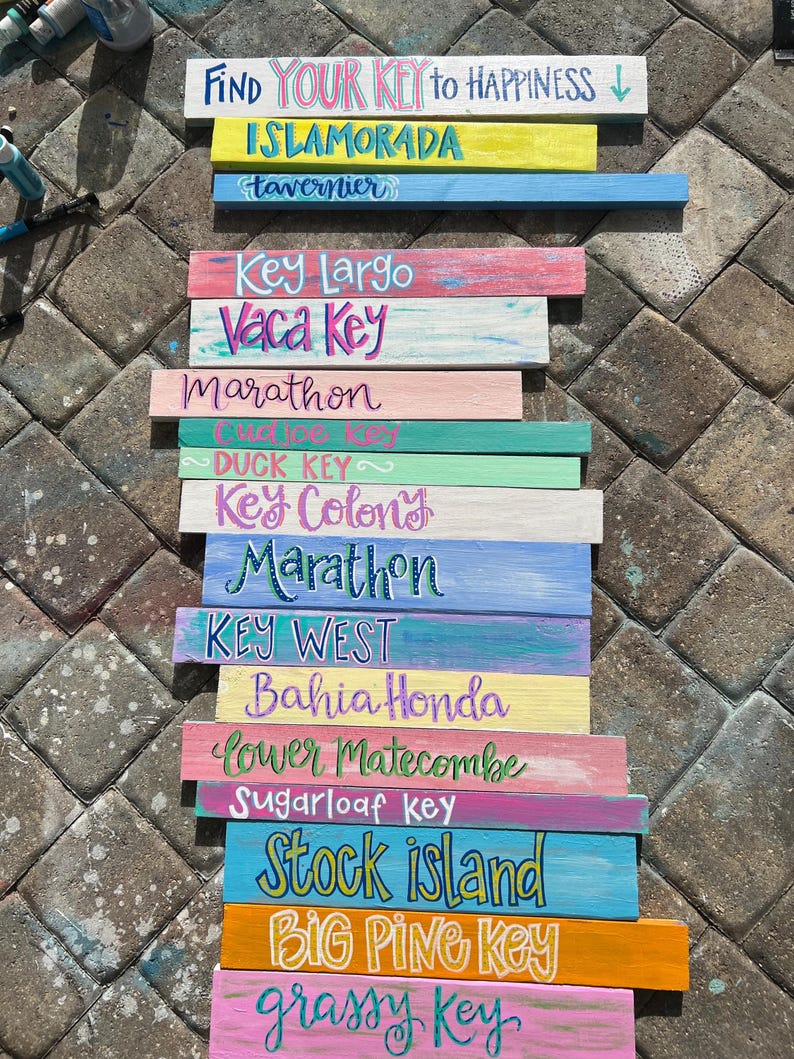 Find YOUR KEY to HAPPINESS ↓
ISLAMORADA
tavernier
Key Largo
Vaca Key
Marathon
Cudjoe Key
~ DUCK KEY ~
Key Colony
Marathon
KEY WEST
Bahia Honda
lower Matecombe
Sugarloaf Key
Stock island
BIG PINE KEY
grassy Key